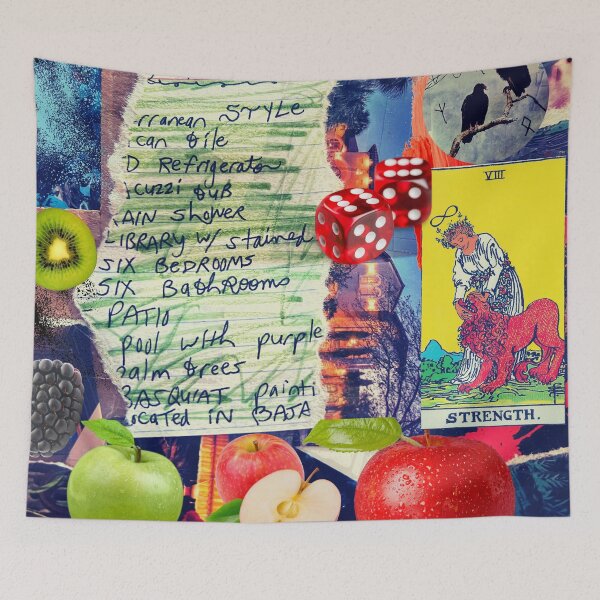 rranean STYLE
can tile
D Refrigerator
cuzzi tub
AIN Shower
IBRARY W/ stained
SIX BEDROOMS
SIX BathRooms
PATIO
pool with purple
alm trees
BASQUIAT painti
ocated IN BAJA
VIII
STRENGTH.